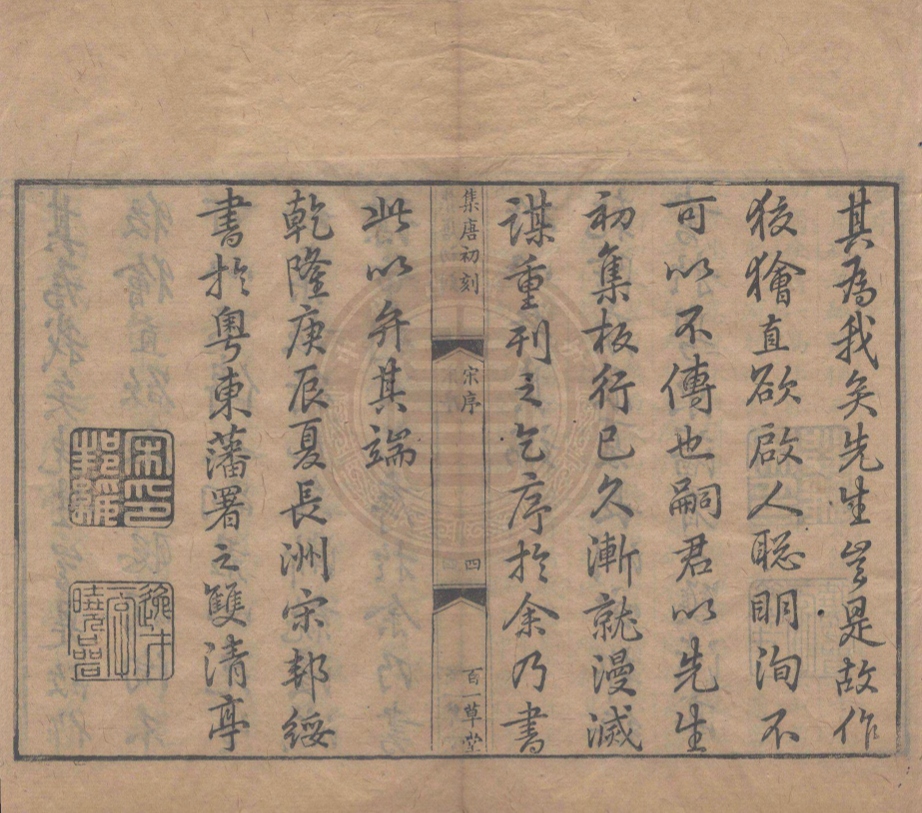 其為我矣先生豈是故作
狡獪直欲啟人聡明洵不
可以不傳也嗣君以先生
初集板行已久漸就漫滅
謀重刊之乞序於余乃書
集唐初刻
宋序
四
百一草堂
此以弁其端
乾隆庚辰夏長洲宋邦綏
書於粵東藩署之雙清亭
宋印邦綏